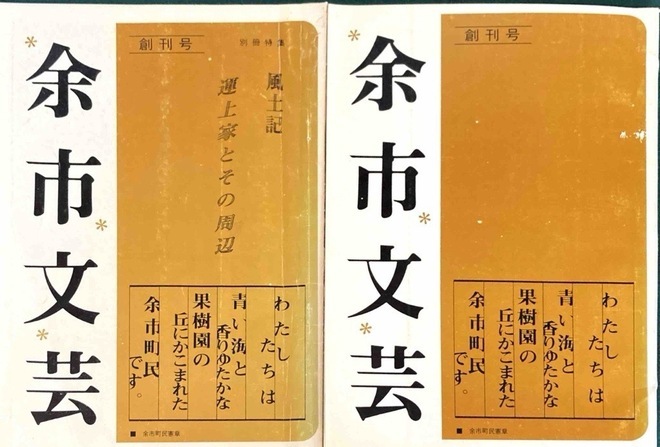 余市文芸
創刊号
別冊特集
風土記
運上家とその周辺
わたしたちは
青い海と
香りゆたかな
果樹園の
丘にかこまれた
余市町民です。
■ 余市町民憲章
余市文芸
創刊号
わたしたちは
青い海と
香りゆたかな
果樹園の
丘にかこまれた
余市町民です。
■ 余市町民憲章